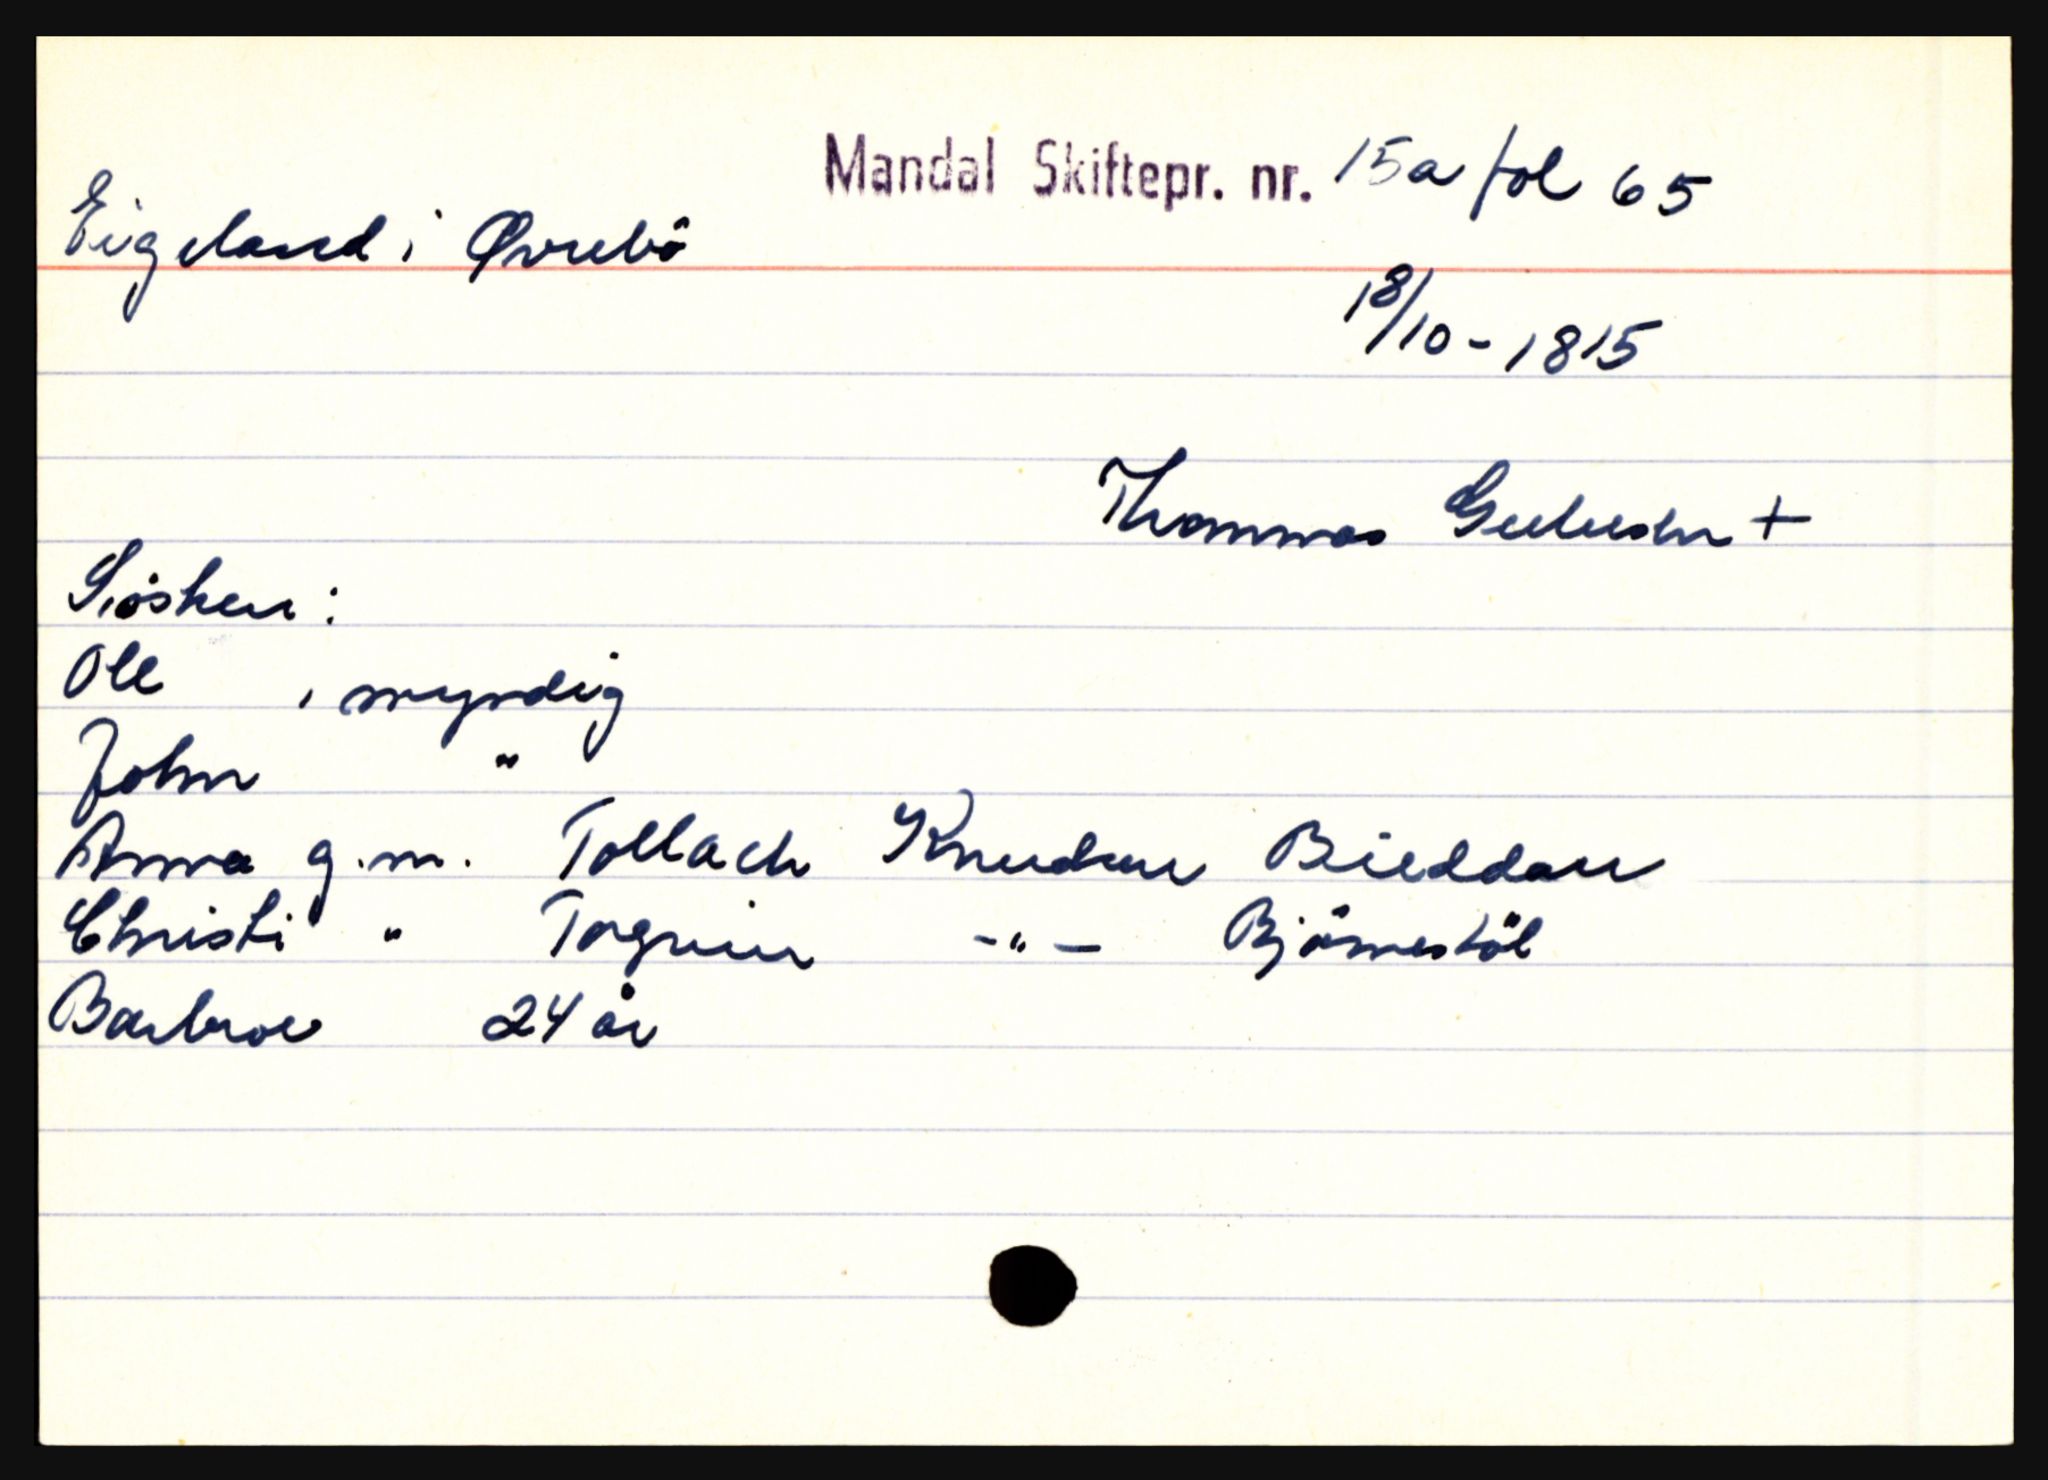 Mandal Skiftepr. nr. 15a fol 65
Eigeland i Øvrebö
18/10-1815
Thommas +
Siösken:
Ole , myndig
John "
Anna g.m. Tollach Knudsen Bieddau
Christi " Torgrim -"- Björnestöl
Barbroe 24 år